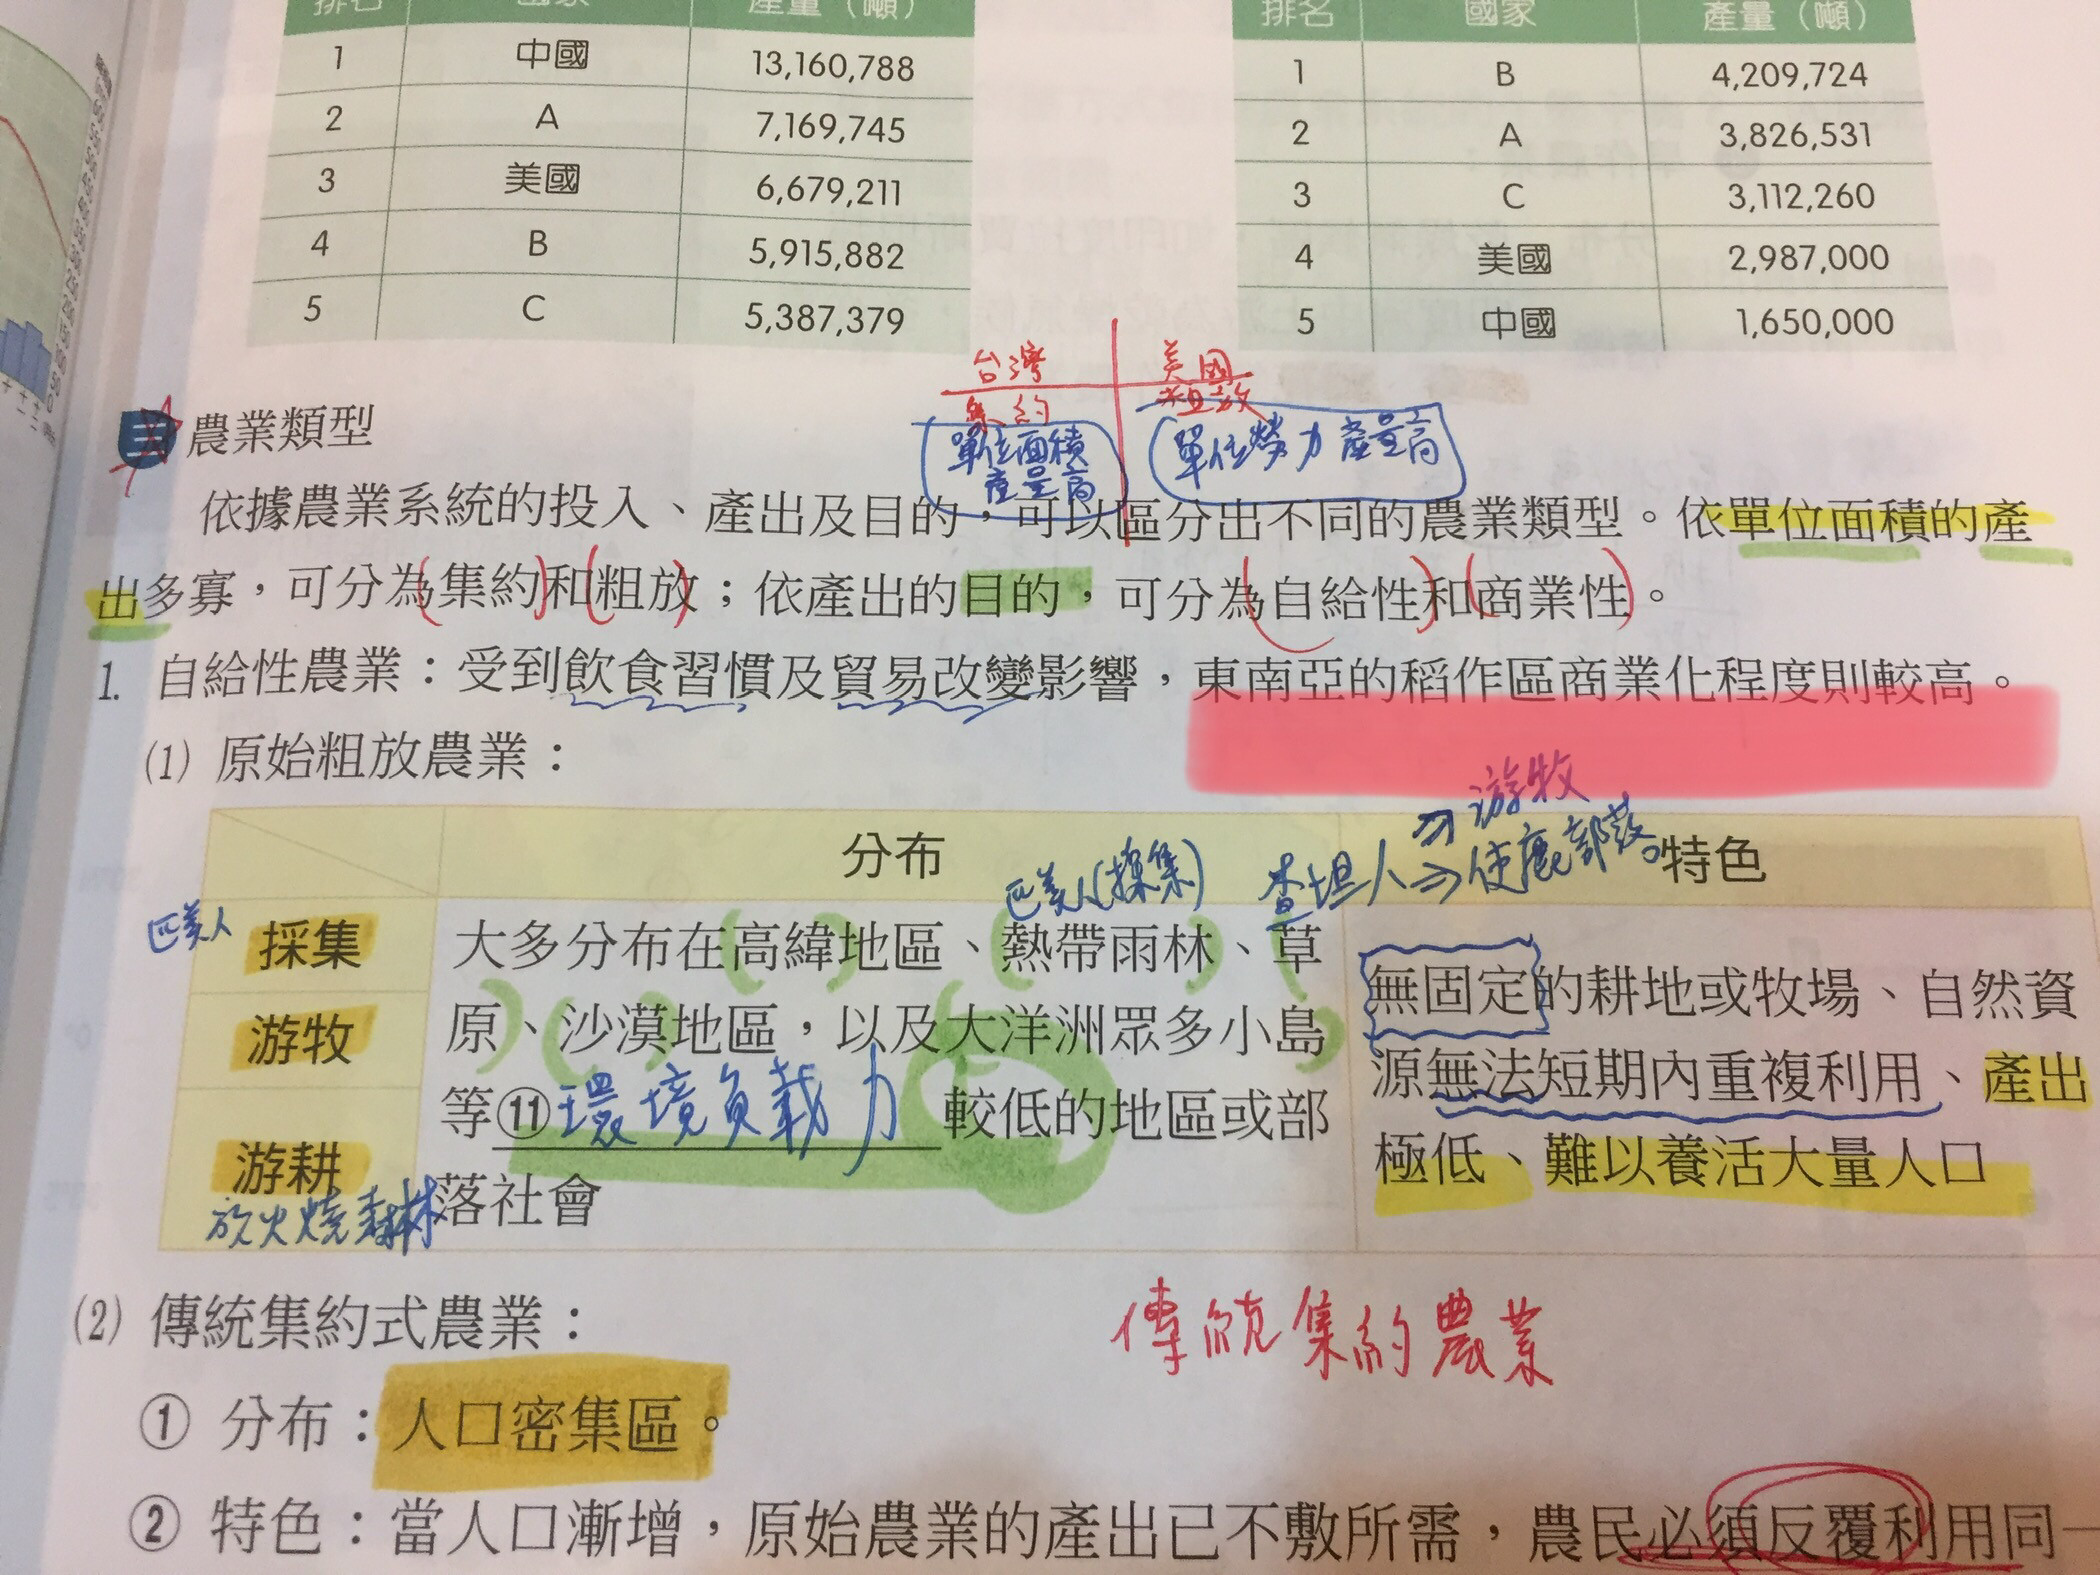 排名 國家 產量（噸）
1 中國 13,160,788
2 A 7,169,745
3 美國 6,679,211
4 B 5,915,882
5 C 5,387,379
排名 國家 產量（噸）
1 B 4,209,724
2 A 3,826,531
3 C 3,112,260
4 美國 2,987,000
5 中國 1,650,000
台灣 美國
集約 粗放
單位面積
產量高
單位勞力產量高
三 農業類型
依據農業系統的投入、產出及目的，可以區分出不同的農業類型。依單位面積的產
出多寡，可分為集約和粗放；依產出的目的，可分為自給性和商業性。
1. 自給性農業：受到飲食習慣及貿易改變影響，東南亞的稻作區商業化程度則較高。
(1) 原始粗放農業：
⇒游牧
查坦人⇒使鹿部落
分布 特色
匹美人(採集)
匹美人
採集
游牧
游耕
放火燒森林
大多分布在高緯地區、熱帶雨林、草
原、沙漠地區，以及大洋洲眾多小島
等⑪環境負載力較低的地區或部
落社會
無固定的耕地或牧場、自然資
源無法短期內重複利用、產出
極低、難以養活大量人口
(2) 傳統集約式農業：
傳統集約農業
① 分布：人口密集區。
② 特色：當人口漸增，原始農業的產出已不敷所需，農民必須反覆利用同一